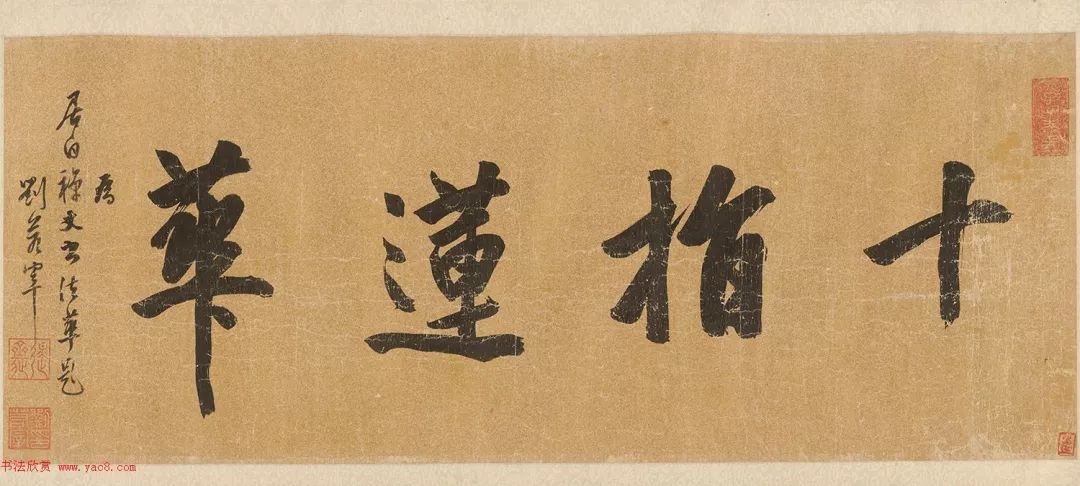 十指蓮華
為
居白禪丈書法華題
劉若宰
书法欣赏 www.yac8.com